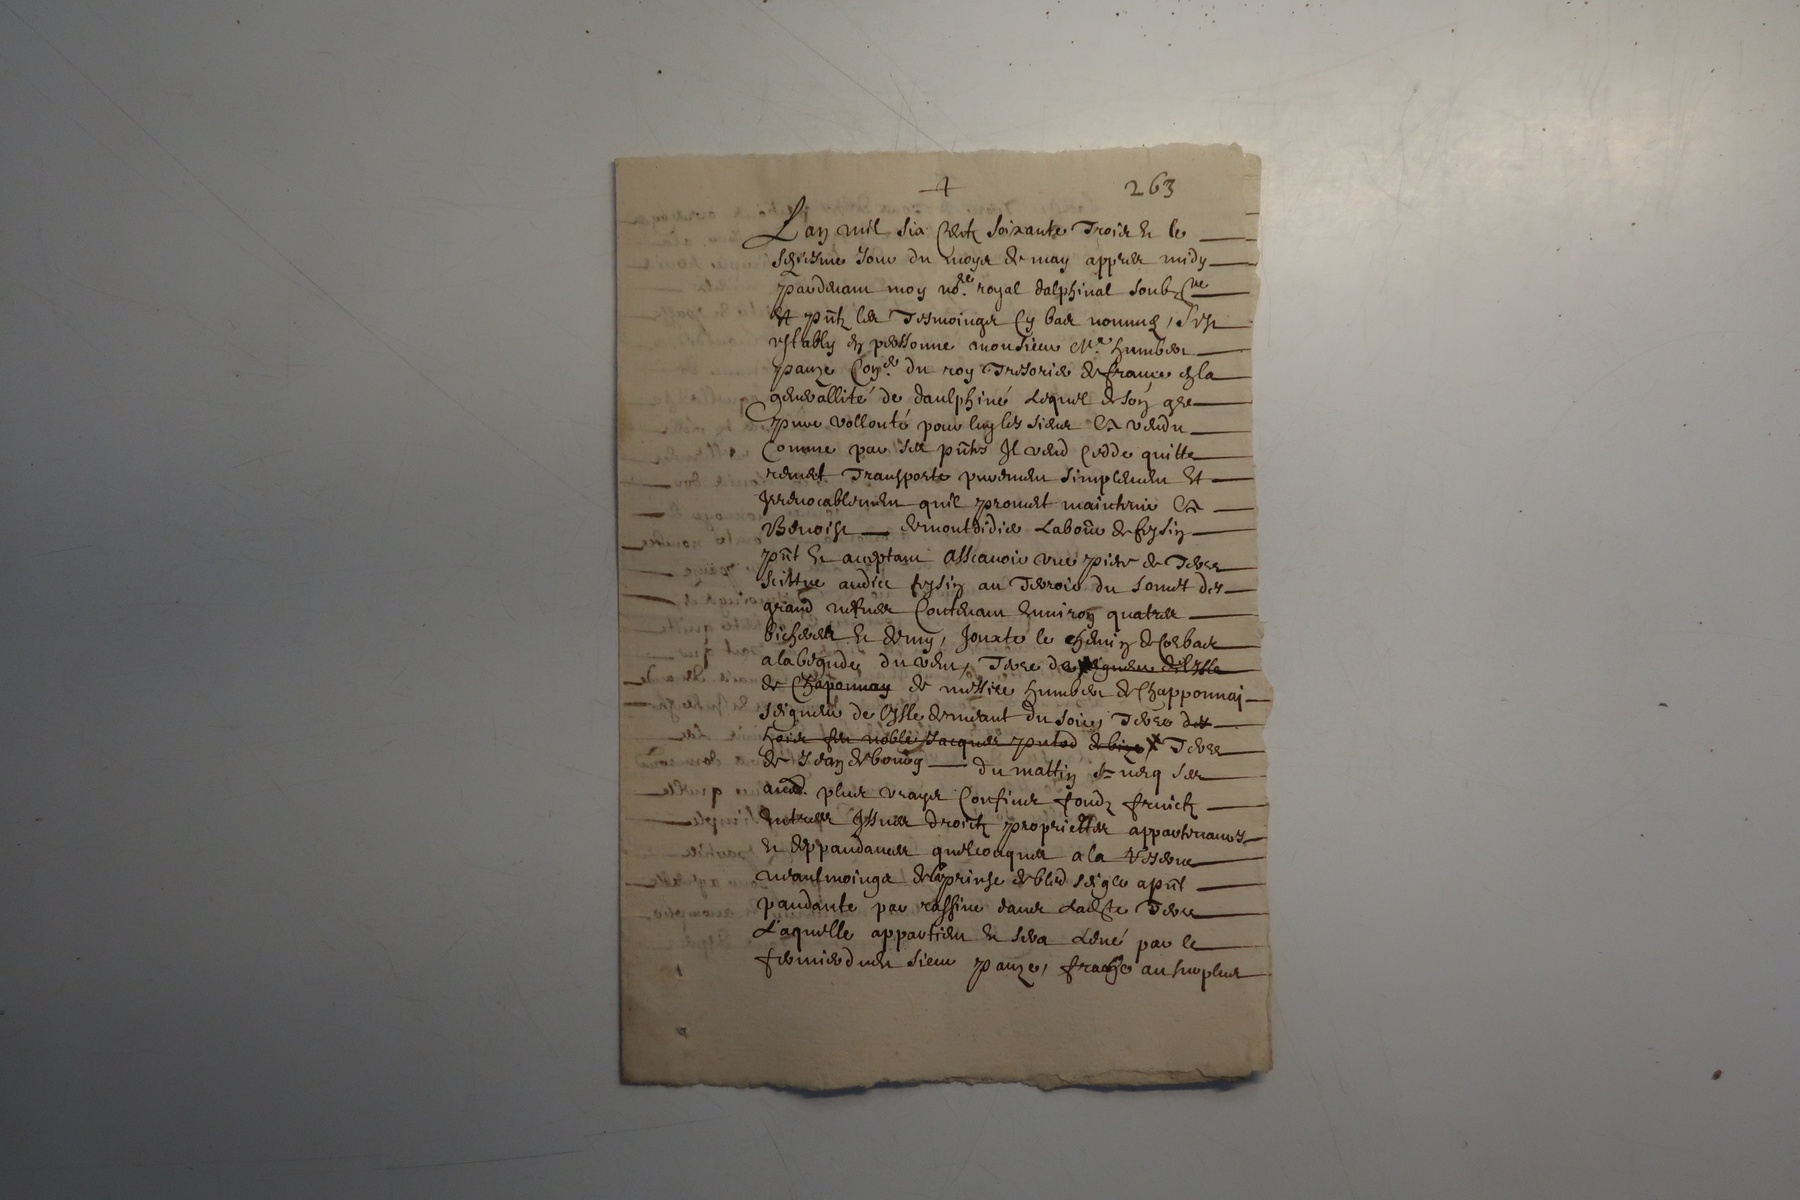 263
L'an mil six centz soixante trois & le
seiziesme jour du moys de may appres midy
pardevant moy no.re royal dalphinal soubz.ne
et pñtz les tesmoings cy bas nommez, s'est
estably en personne monsieur M.e Humbert
panze con.er du roy tresorier de france en la
generallité de daulphiné lequel de son gre
pure vollonté pour luy & les siens a vendu
comme par ses pñtes Il vend cedde quitte
remet transporte purement simplement et
Irrevocablement quil promet maintenir a
Benoist de montdidier labour.r de feysin
pñt & aceptant assavoir une piece de terre
scittue audict feysin au terroir du
grand contenant environ quatres
bicherees & demy, jouxte le chemin de corbas
a la begude du vent, terre du seigneur de l'Isle
de Chaponnay de messire humbert de Chapponnay
seigneur de l'Isle de meant du soir, terre des
hoirs feu noble Jacques putod terre
de Jean de bourg du mattin & avecq ses
aud. plus vrayes confines fondz fruictz
entrees Issues droictz propriettes appartenances
& deppandances quelconques a la reserve
neantmoings de la prinse de bled seigle a pñt
pandante par rassine dans ladicte terre
laquelle appartient & sera levé par le
fermier dudit sieur panze, franche au surplus